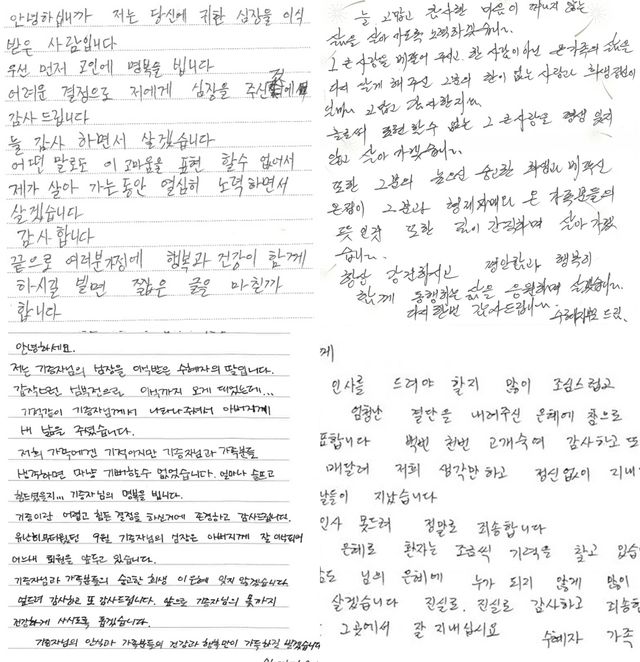 안녕하십니까 저는 당신에 귀한 심장을 이식
받은 사람입니다
우선 먼저 고인에 명복을 빕니다
어려운 결정으로 저에게 심장을 주신
감사 드립니다
늘 감사 하면서 살겠습니다
어떤 말로도 이 고마움을 표현 할수 없어서
제가 살아 가는동안 열심히 노력하면서
살겠습니다
감사 합니다
끝으로 여러분 행복과 건강이 함께
하시길 빌면 짧은 글을 마칠까
합니다
늘 고맙고 감사한 마음이 떠나지 않는
삶을 살아 가도록 노력하겠습니다
그 큰사랑을 베풀어 주시고 한 사람이 아닌 온가족의 삶을
다시 살게 해주신 그분의 한이 없는 사랑과 희생정신이
얼마나 고맙고 감사한지요
글로써 표현할수 없는 그 큰사랑을 평생 잊지
않고 살아 가겠습니다
또한 그분의 높으신 숭고한 희생과 베푸신
온정이 그분과 형제자매와 온 가족분들의
뜻인것 또한 깊이 간직하며 살아 가겠
습니다
항상 건강하시고 평안함과 행복이
함께 동행하는 삶을 응원하며 살겠습니다
다시한번 감사드립니다 수혜자 드림
안녕하세요.
저는 기증자님의 심장을 이식받은 수혜자의 딸입니다.
갑작스런 심부전으로 이식까지 오게 되었는데...
기적같이 기증자님께서 나타나주셔서 아버지께
새 삶을 주셨습니다.
저희 가족에겐 기적이지만 기증자님과 가족분들
생각하면 마냥 기뻐할수 없었습니다. 얼마나 슬프고
힘드셨을지... 기증자님의 명복을 빕니다.
기증이란 어렵고 힘든 결정을 하신거에 존경하고 감사드립니다.
유난히 무더웠던 9월 기증자님의 심장은 아버지께 잘 이식되어
어느새 퇴원을 앞두고 있습니다.
기증자님과 가족분들의 숭고한 희생 이 은혜 잊지 않겠습니다
엎드려 감사하고 또 감사드립니다. 앞으로 기증자님의 몫까지
건강하게 사시도록 돕겠습니다.
기증자님의 안식과 가족분들의 건강과 행복만이 가득하길 빌겠습니다
께
인사를 드려야 할지 많이 조심스럽고
엄청난 결단을 내려주신 은혜에 참으로
표합니다 백번 천번 고개숙여 감사하고 또
매달려 저희 생각만 하고 정신없이 지내
날들이 지났습니다
인사 못드려 정말로 죄송합니다
은혜로 환자는 조금씩 기력을 찾고 있습
님의 은혜에 누가 되지 않게 많이
살겠습니다 진실로, 진실로 감사하고 죄송한
그곳에서 잘 지내십시요
수혜자 가족